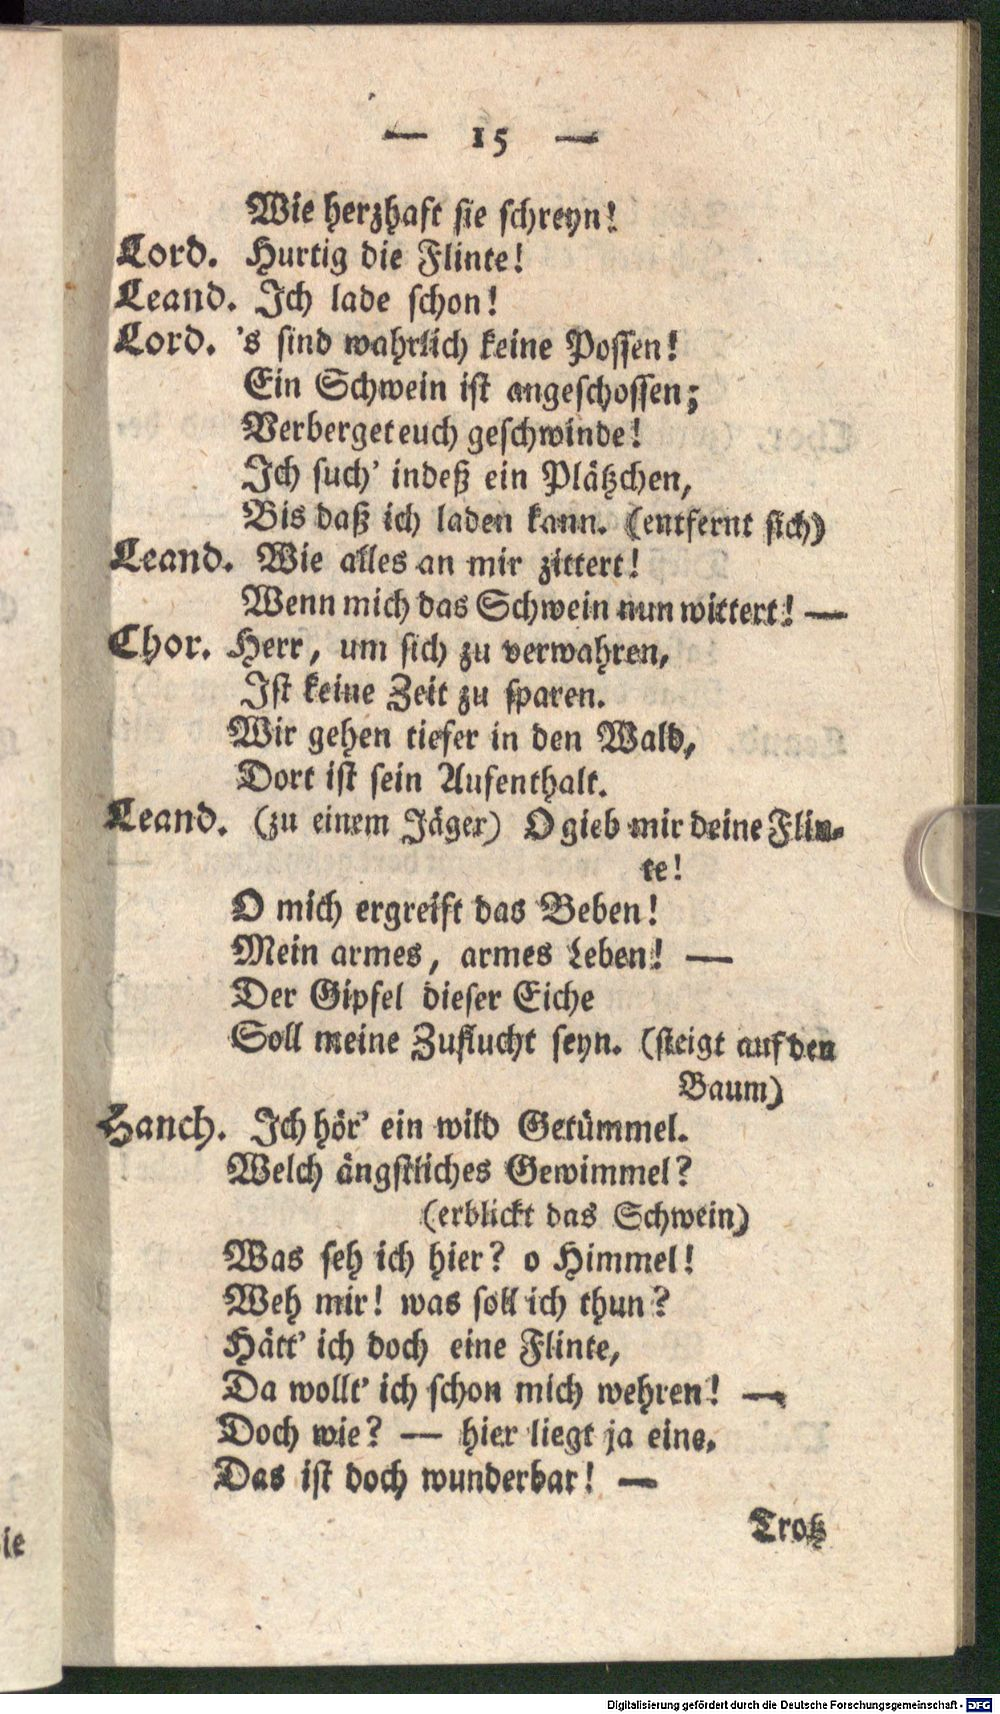 — 15 —
Wie herzhaft sie schreyn!
Lord. Hurtig die Flinte!
Leand. Ich lade schon!
Lord. 's sind wahrlich keine Possen!
Ein Schwein ist angeschossen;
Verberget euch geschwinde!
Ich such' indeß ein Plätzchen,
Bis daß ich laden kann. (entfernt sich)
Leand. Wie alles an mir zittert!
Wenn mich das Schwein nun wittert! —
Chor. Herr, um sich zu verwahren,
Ist keine Zeit zu sparen.
Wir gehen tiefer in den Wald,
Dort ist sein Aufenthalt.
Leand. (zu einem Jäger) O gieb mir deine Flin-
te!
O mich ergreift das Beben!
Mein armes, armes Leben! —
Der Gipfel dieser Eiche
Soll meine Zuflucht seyn. (steigt auf den
Baum)
Hanch. Ich hör' ein wild Getümmel.
Welch ängstliches Gewimmel?
(erblickt das Schwein)
Was seh ich hier? o Himmel!
Weh mir! was soll ich thun?
Hätt' ich doch eine Flinte,
Da wollt' ich schon mich wehren! —
Doch wie? — hier liegt ja eine,
Das ist doch wunderbar! —
Trotz
ie
Digitalisierung gefördert durch die Deutsche Forschungsgemeinschaft - DFG